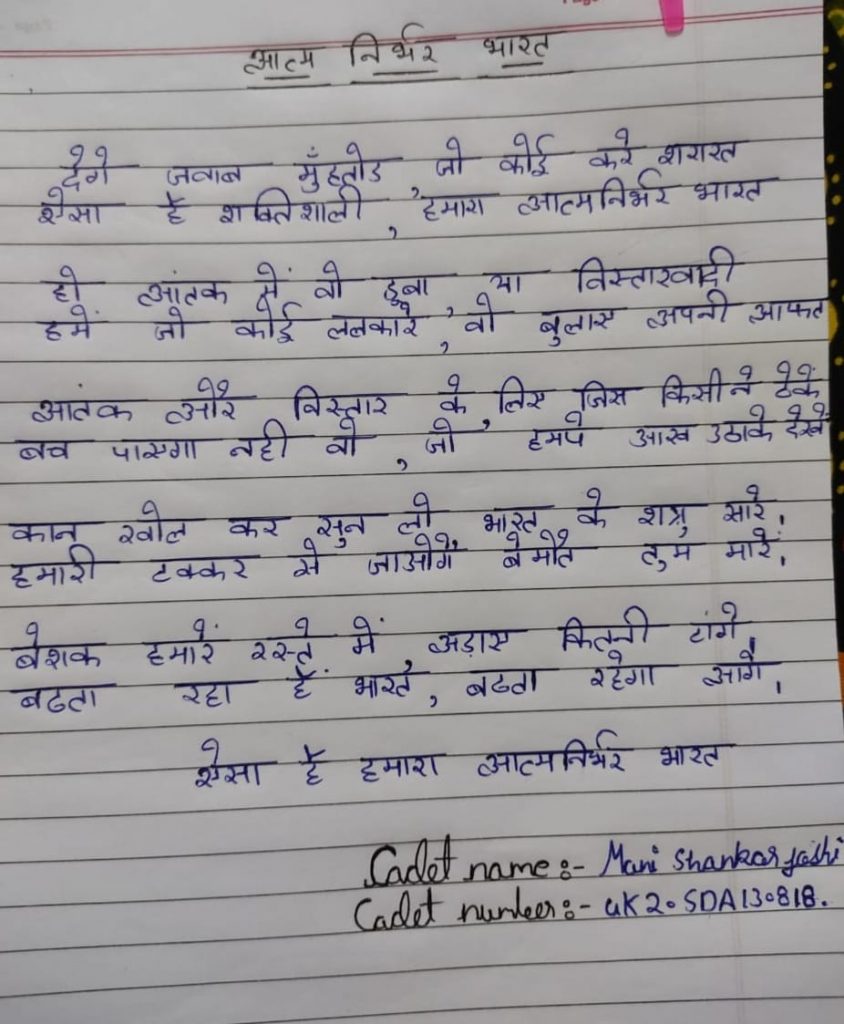 आत्म निर्भर भारत
देंगे जवाब मुँहतोड, जो कोई करे शरारत
ऐसा है शक्तिशाली, हमारा आत्मनिर्भर भारत
हो आंतक में वो डुबा, या विस्तारवादी
हमें जो कोई ललकारे, वो बुलाए अपनी आफत
आंतक और विस्तार के, लिए जिस किसीने टेके
बच पाएगा नही वो, जो हमपे आख उठाके देखे
कान खोल कर सुन लो, भारत के शत्रु सारे।
हमारी टक्कर से जाओगे, बेमौत तुम मारे।
बेशक हमारे रस्ते में, अड़ाए कितनी टांगे।
बढता रहा है भारत, बढता रहेगा आगे।
ऐसा है हमारा आत्मनिर्भर भारत
Cadet name :- Mani Shankar Joshi
Cadet number :- UK20SDA130818.